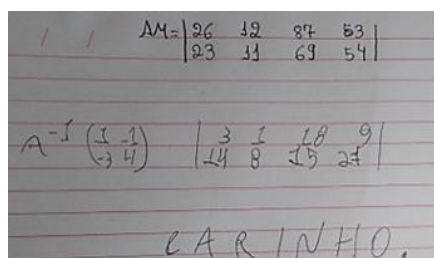 AM = | 26 12 87 63
23 11 69 54 |
A⁻¹ ( 1 -1 | 3 1 18 9
-3 4 ) 14 8 15 27 |
CARINHO.